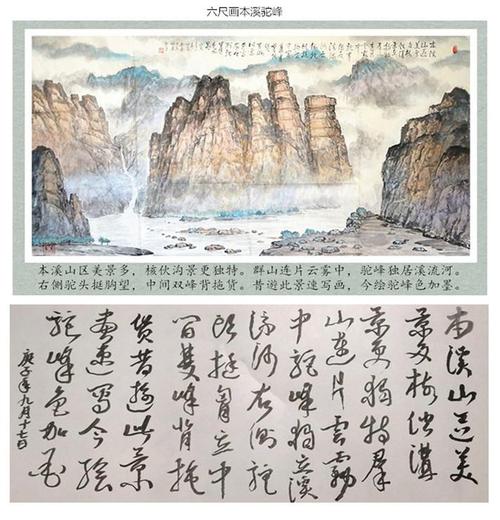 六尺画本溪驼峰
本溪山区美景多，核伏沟景更独特。群山连片云雾中，驼峰独居溪流河。
右侧驼头挺胸望，中间双峰背拖货。昔遊此景速写画，今给驼峰色加墨。
本溪山区美
景多核伏溝
景更獨特群
山連片雲霧
中駝峰獨立溪
流河右側駝
頭挺胸立中
間雙峰背拖
货昔遊此景
畫速寫今绘
駝峰色加墨
庚子年九月十七日